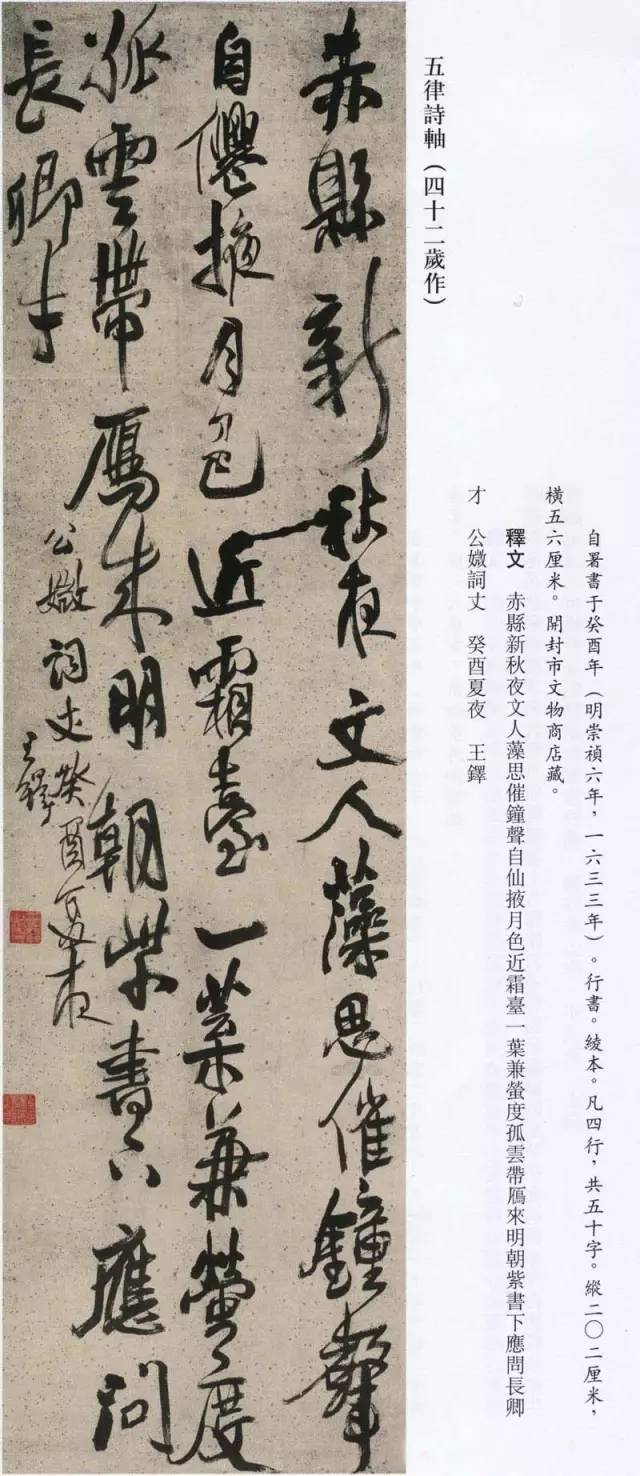 五律詩軸（四十二歲作）
自署書于癸酉年（明崇禎六年，一六三三年）。行書。綾本。凡四行，共五十字。縱二〇二厘米，
橫五六厘米。開封市文物商店藏。
釋文　赤縣新秋夜文人藻思催鐘聲自仙掖月色近霜臺一葉兼螢度孤雲帶鴈來明朝紫書下應問長卿
才　公媺詞丈　癸酉夏夜　王鐸
赤縣新秋夜文人藻思催鐘聲
自僊掖月色近霜臺一葉兼螢度
孤雲帶鴈來明朝紫書下應問
長卿才
公媺詞丈癸酉夏夜
王鐸